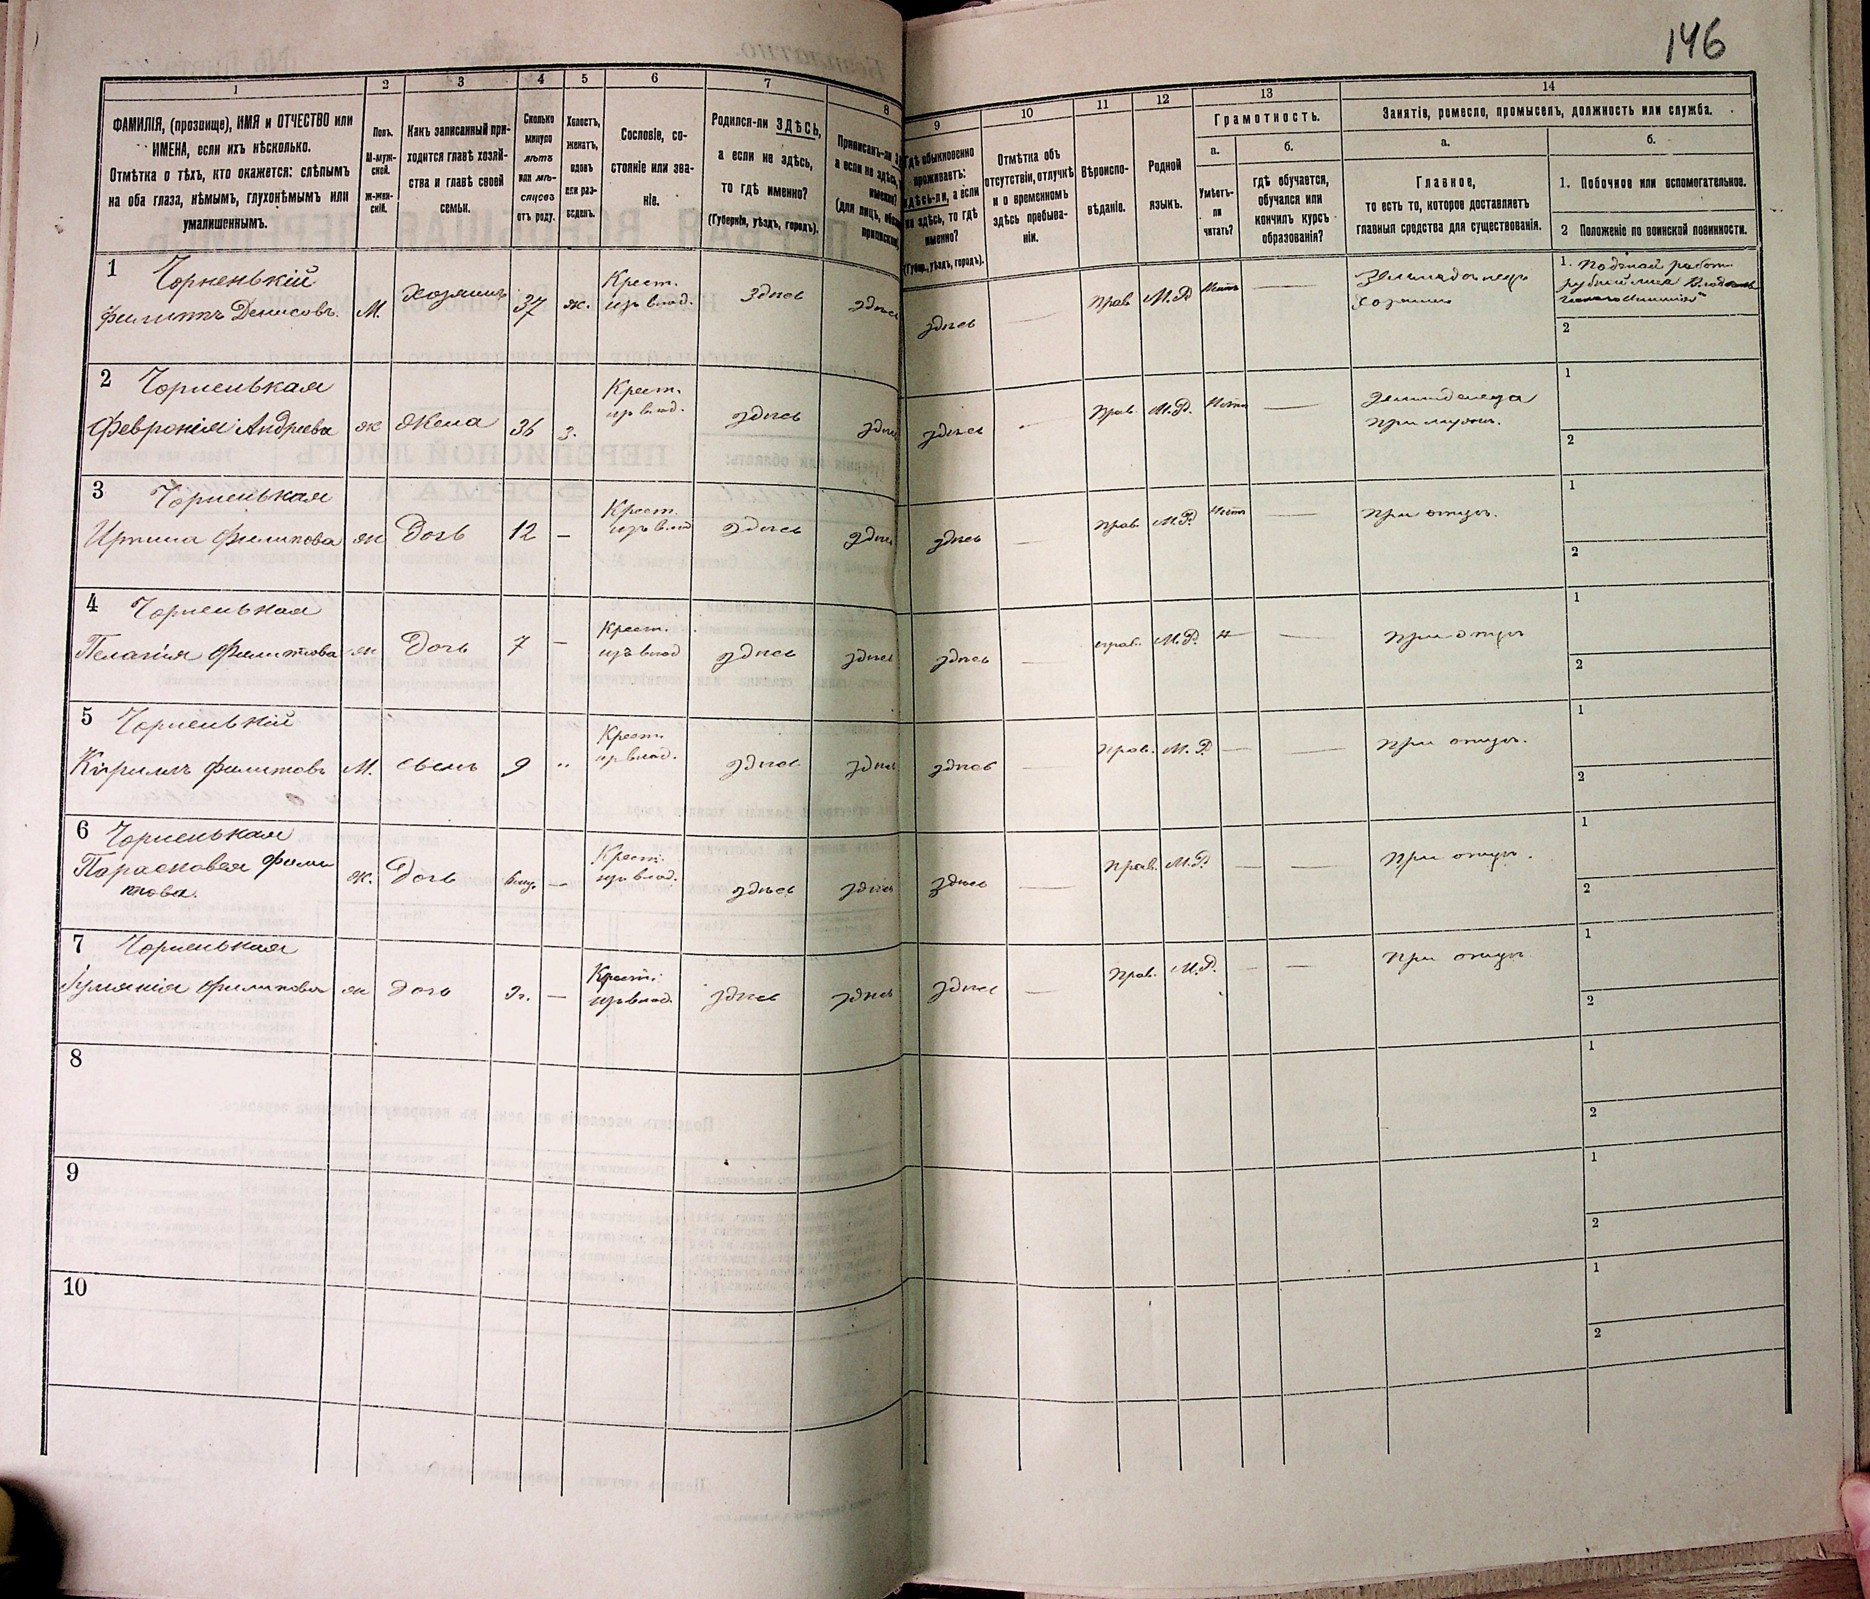 146
1
2
3
4
5
6
7
8
9
10
11
12
13
14
ФАМИЛІЯ, (прозвище), ИМЯ и ОТЧЕСТВО или
ИМЕНА, если ихъ нѣсколько.
Отмѣтка о тѣхъ, кто окажется: слѣпымъ
на оба глаза, нѣмымъ, глухонѣмымъ или
умалишеннымъ.
Полъ.
М-муж-
ской.
Ж-жен-
скій.
Какъ записанный при-
ходится главѣ хозяй-
ства и главѣ своей
семьи.
Сколько
минуло
лѣтъ
или мѣ-
сяцевъ
отъ роду.
Холостъ,
женатъ,
вдовъ
или раз-
веденъ.
Сословіе, со-
стояніе или зва-
ніе.
Родился-ли ЗДѢСЬ,
а если не здѣсь,
то гдѣ именно?
(Губернія, уѣздъ, городъ).
Приписанъ-ли
а если не здѣсь,
(для лицъ,
Гдѣ обыкновенно
проживаетъ:
здѣсь-ли, а если
не здѣсь, то гдѣ
именно?
(Губер., уѣздъ, городъ).
Отмѣтка объ
отсутствіи, отлучкѣ
и о временномъ
здѣсь пребыва-
ніи.
Вѣроиспо-
вѣданіе.
Родной
языкъ.
Грамотность.
а.
б.
Умѣетъ-
ли
читать?
гдѣ обучается,
обучался или
кончилъ курсъ
образованія?
Занятіе, ремесло, промыселъ, должность или служба.
а.
б.
Главное,
то есть то, которое доставляетъ
главныя средства для существованія.
1. Побочное или вспомогательное.
2 Положеніе по воинской повинности.
1 Чорненькій
Филиппъ Денисовъ. М. Хозяинъ 37 ж. Крест. изъ влад. здѣсь здѣсь
здѣсь — Прав М.Р. Нѣтъ — Хозяинъ
1.
2
2 Чорненькая
Февронія Андреева ж Жена 36 з. Крест. изъ влад. здѣсь здѣсь
здѣсь — Прав. М.Р. Нѣтъ — при мужѣ.
1
2
3 Чорненькая
Ирина Филипова ж Дочь 12 — Крест. изъ влад здѣсь здѣсь
здѣсь — Прав. М.Р. Нѣтъ — При отцѣ.
1
2
4 Чорненькая
Пелагія Филипова ж Дочь 7 — Крест. изъ влад здѣсь здѣсь
здѣсь — прав. М.Р. Н — При отцѣ
1
2
5 Чорненькій
Кирилъ Филиповъ М. Сынъ 9 " Крест. изъ влад. здѣсь здѣсь
здѣсь — Прав. М.Р. — — При отцѣ.
1
2
6 Чорненькая
Парасковея Фили
пова. ж. Дочь — Крест. изъ влад. здѣсь здѣсь
здѣсь — Прав. М.Р. — — При отцѣ.
1
2
7 Чорненькая
Филипова ж Дочь — Крест. изъ влад. здѣсь здѣсь
здѣсь — Прав. М.Р. — — При отцѣ
1
2
8
1
2
9
1
2
10
1
2